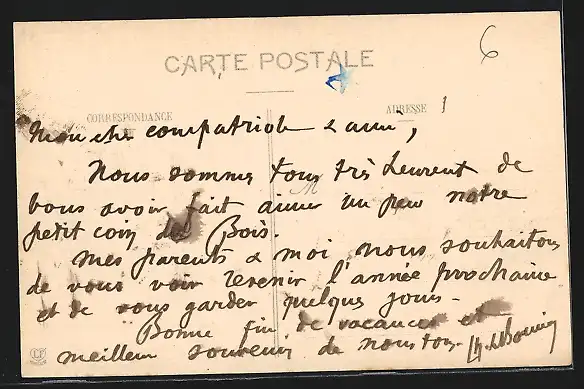 6
CARTE POSTALE
CORRESPONDANCE
ADRESSE
Mon cher compatriote & ami,
Nous sommes tous très heureux de
vous avoir fait aimer un peu notre
petit coin du Bois.
Mes parents & moi nous souhaitons
de vous voir revenir l'année prochaine
et de vous garder quelques jours -
Bonne fin de vacances et
meilleur souvenir de nous tous.
LF